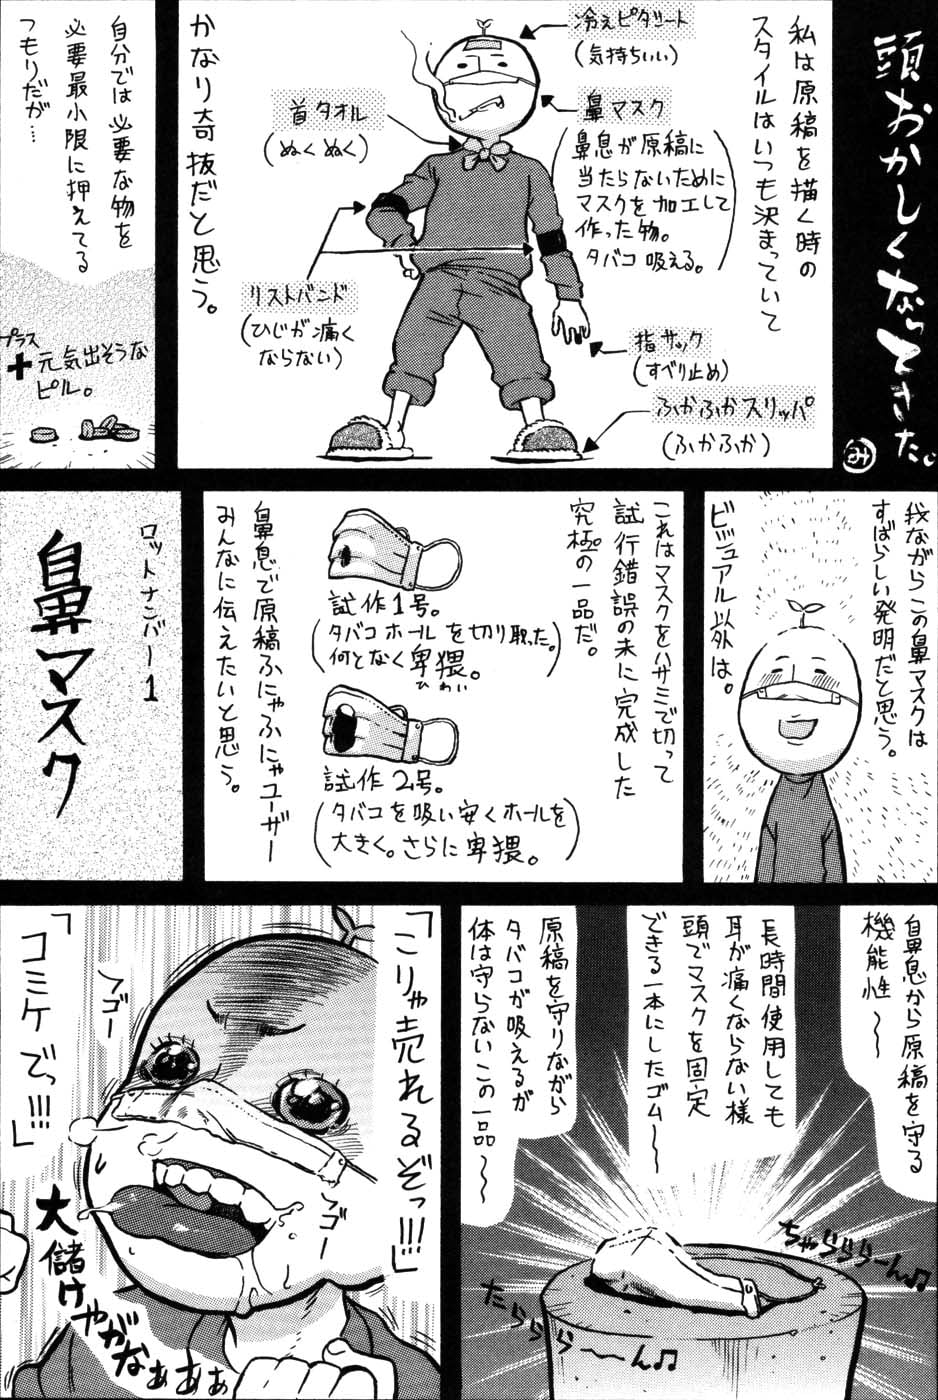 頭おかしくなってきた。
み
私は原稿を描く時の
スタイルはいつも決まっていて
冷えピタシート
(気持ちいい)
鼻マスク
鼻息が原稿に
当たらないために
マスクを加工して
作った物。
タバコ吸える。
首タオル
(ぬくぬく)
リストバンド
(ひじが痛く
ならない)
指サック
(すべり止め)
ふかふかスリッパ
(ふかふか)
かなり奇抜だと思う。
自分では必要な物を
必要最小限に押えてる
つもりだが…
プラス
+元気出そうな
ピル。
我ながらこの鼻マスクは
すばらしい発明だと思う。
ビジュアル以外は。
これはマスクをハサミで切って
試行錯誤の末に完成した
究極の一品だ。
試作1号。
(タバコホールを切り取った。
何となく卑猥。)
ひわい
試作2号。
(タバコを吸い安くホールを
大きく。さらに卑猥。)
鼻息で原稿ふにゃふにゃユーザー
みんなに伝えたいと思う。
ロットナンバー1
鼻マスク
鼻息から原稿を守る
機能性〜
長時間使用しても
耳が痛くならない様
頭でマスクを固定
できる一本にしたゴム〜
原稿を守りながら
タバコが吸えるが
体は守らないこの一品〜
ちゃらららーん♫
たららら〜ーん♫
「こりゃ売れるぞっ!!!」
「コミケでっ!!!」
フゴー
フゴー
大儲けやがなぁぁぁぁ